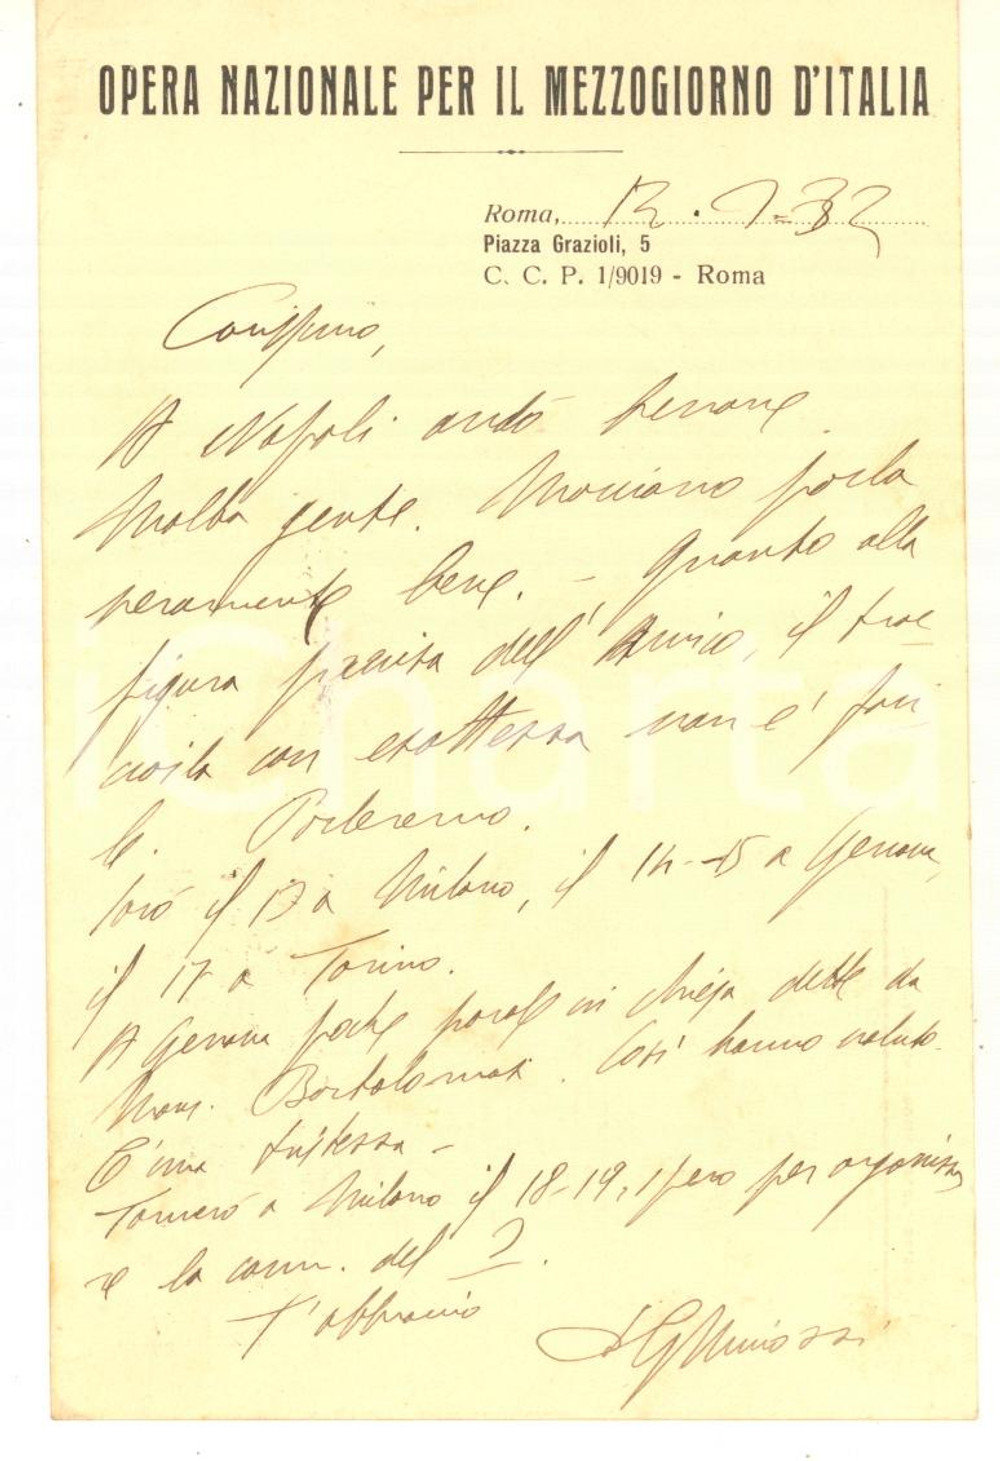 OPERA NAZIONALE PER IL MEZZOGIORNO D'ITALIA
Roma, 12.
Piazza Grazioli, 5
C. C. P. 1/9019 - Roma
Carissimo,
A Napoli andò benone.
Molta gente. parla
veramente bene. - Quanto alla
figura precisa dell'Amico, il trac-
ciarla con esattezza non e' faci
le. Parleremo.
Sarò il 13 a Milano, il 14-15 a Genova,
il 17 a Torino.
A Genova poche parole in chiesa dette da
Mons. Così hanno voluto.
E' una tristezza -
Tornerò a Milano il 18-19, spero per organizza
re la comm. del 2.
T'abbraccio
D G Minozzi